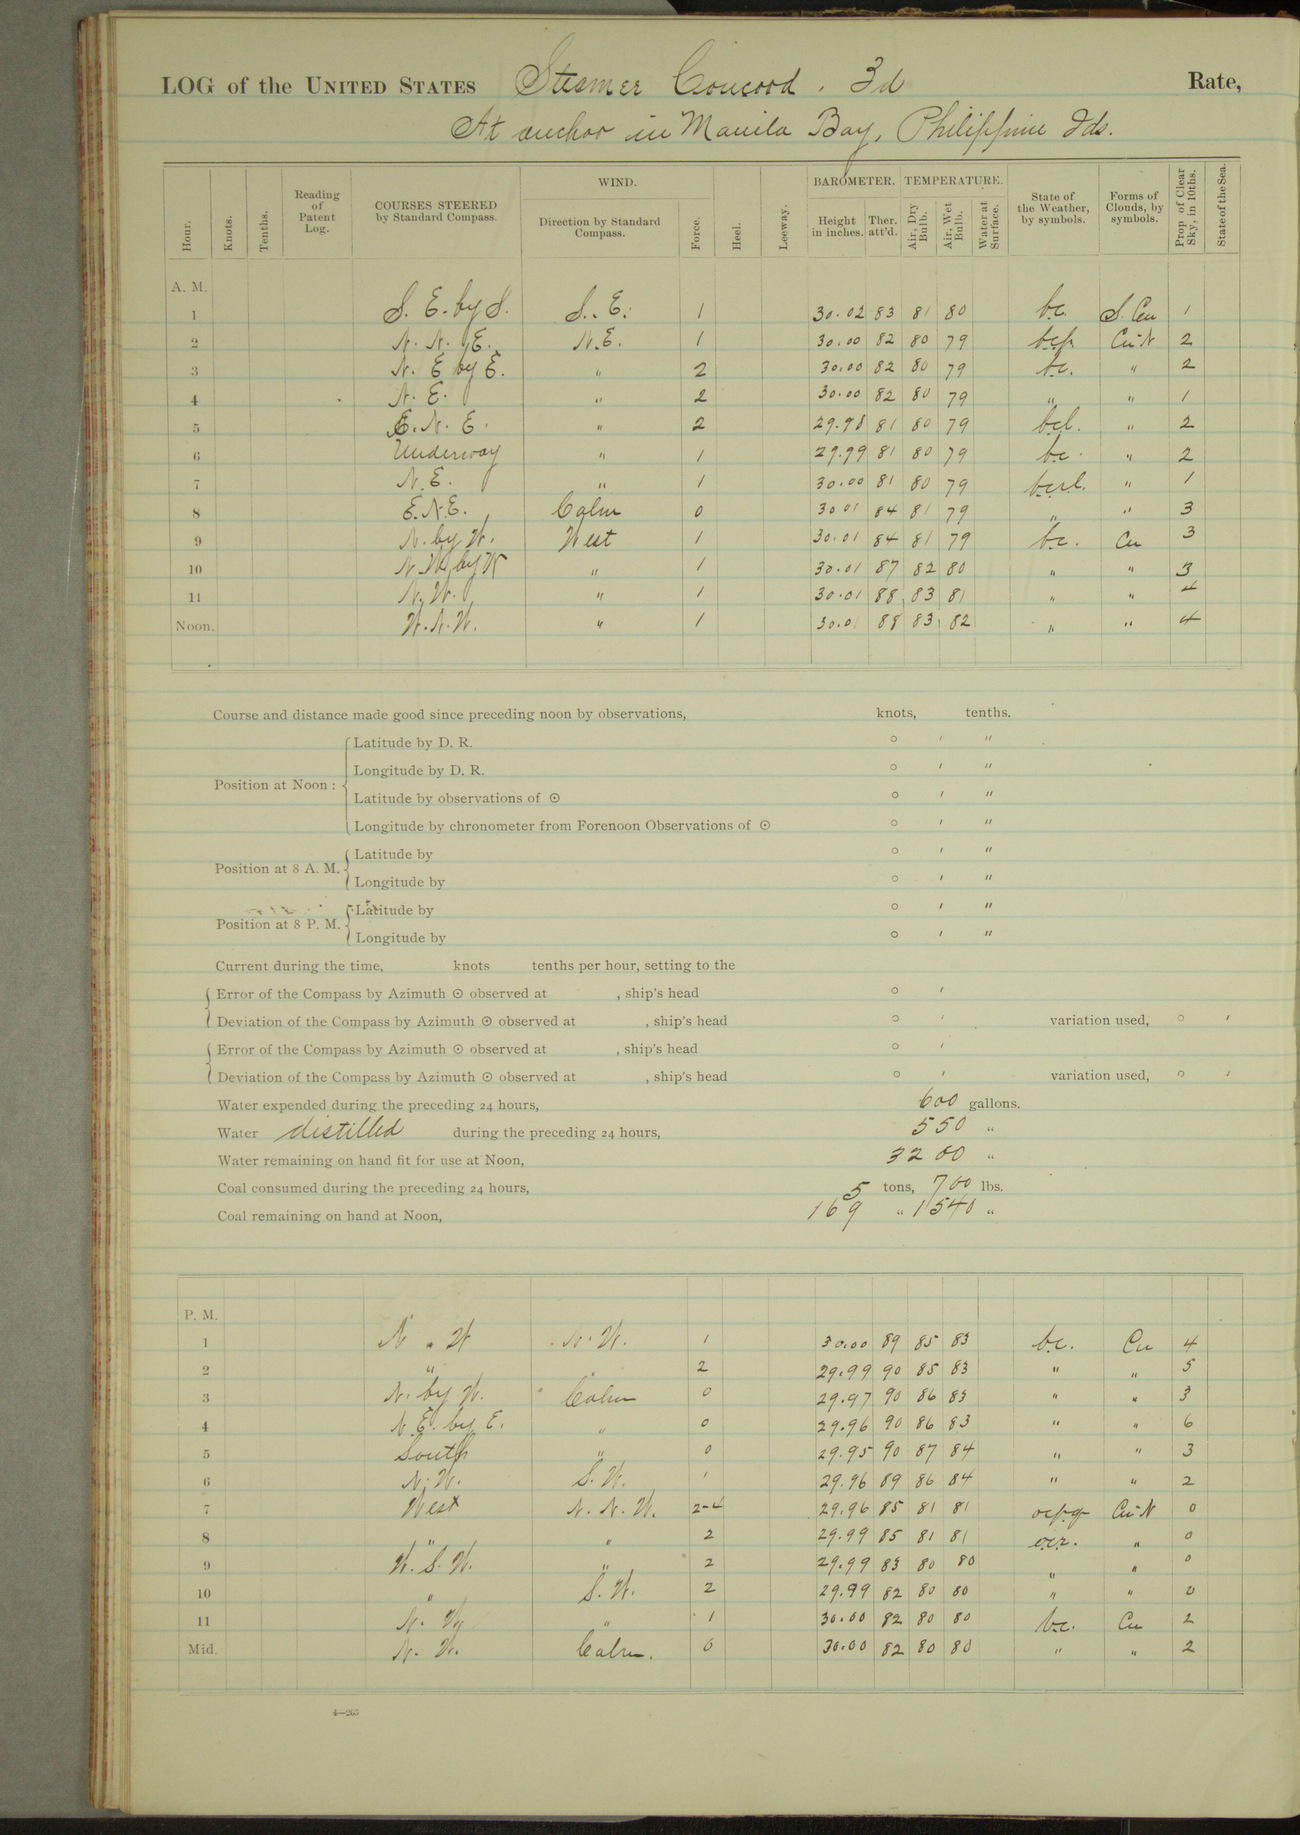 LOG of the UNITED STATES Steamer Concord. 3d Rate,
At anchor in Manila Bay, Philippine Ids.
Hour. Knots. Tenths. Reading of Patent Log. COURSES STEERED by Standard Compass. WIND. Direction by Standard Compass. Force. Heel. Leeway. BAROMETER. Height in inches. Ther. att'd. TEMPERATURE. Air, Dry Bulb. Air, Wet Bulb. Water at Surface. State of the Weather, by symbols. Forms of Clouds, by symbols. Prop. of Clear Sky, in 10ths. State of the Sea.
A. M.
1 S. E. by S. S. E. 1 30.02 83 81 80 b.c. S. Cu 1
2 N. N. E. N.E. 1 30.00 82 80 79 bcp. Cu-N 2
3 N. E by E. " 2 30.00 82 80 79 b.c. " 2
4 N. E. " 2 30.00 82 80 79 " " 1
5 E. N. E. " 2 29.98 81 80 79 bcl. " 2
6 Underway " 1 29.99 81 80 79 b.c. " 2
7 N. E. " 1 30.00 81 80 79 bcrl. " 1
8 E.N.E. Calm 0 30 01 84 81 79 " " 3
9 N. by W. West 1 30.01 84 81 79 b.c. Cu 3
10 N.W. by W " 1 30.01 87 82 80 " " 3
11 N. W. " 1 30.01 88 83 81 " " 4
Noon. W.N.W. " 1 30.01 88 83 82 " " 4
Course and distance made good since preceding noon by observations, knots, tenths.
Position at Noon: Latitude by D. R. ° ′ ″
Longitude by D. R. ° ′ ″
Latitude by observations of ☉ ° ′ ″
Longitude by chronometer from Forenoon Observations of ☉ ° ′ ″
Position at 8 A. M. Latitude by ° ′ ″
Longitude by ° ′ ″
Position at 8 P. M. Latitude by ° ′ ″
Longitude by ° ′ ″
Current during the time, knots tenths per hour, setting to the
Error of the Compass by Azimuth ☉ observed at , ship's head ° ′
Deviation of the Compass by Azimuth ☉ observed at , ship's head ° ′ variation used, ° ′
Error of the Compass by Azimuth ☉ observed at , ship's head ° ′
Deviation of the Compass by Azimuth ☉ observed at , ship's head ° ′ variation used, ° ′
Water expended during the preceding 24 hours, 600 gallons.
Water distilled during the preceding 24 hours, 550 "
Water remaining on hand fit for use at Noon, 3200 "
Coal consumed during the preceding 24 hours, 5 tons, 700 lbs.
Coal remaining on hand at Noon, 169 " 1540 "
P. M.
1 N " W N. W. 1 30.00 89 85 83 b.c. Cu 4
2 " " 2 29.99 90 85 83 " " 5
3 N. by W. Calm 0 29.97 90 86 83 " " 3
4 N.E. by E. " 0 29.96 90 86 83 " " 6
5 South " 0 29.95 90 87 84 " " 3
6 N. W. S. W. 1 29.96 89 86 84 " " 2
7 West N. N. W. 2-4 29.96 85 81 81 ocpq Cu-N 0
8 " " 2 29.99 85 81 81 ocr. " 0
9 W. S. W. " 2 29.99 83 80 80 " " 0
10 " S. W. 2 29.99 82 80 80 " " 0
11 N. W. " 1 30.00 82 80 80 b.c. Cu 2
Mid. N. W. Calm. 0 30.00 82 80 80 " " 2
4—263